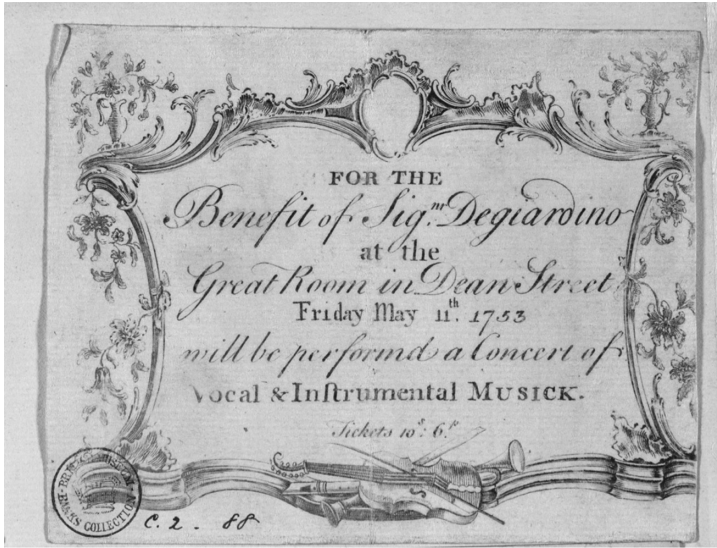 FOR THE
Benefit of Sig.nr Degiardino
at the
Great Room in Dean Street
Friday May 11th. 1753
will be performd a Concert of
Vocal & Inſtrumental MUSICK.
Tickets 10s. 6.d
BRITISH MUSEUM
BANKS COLLECTION
C. 2 - 88